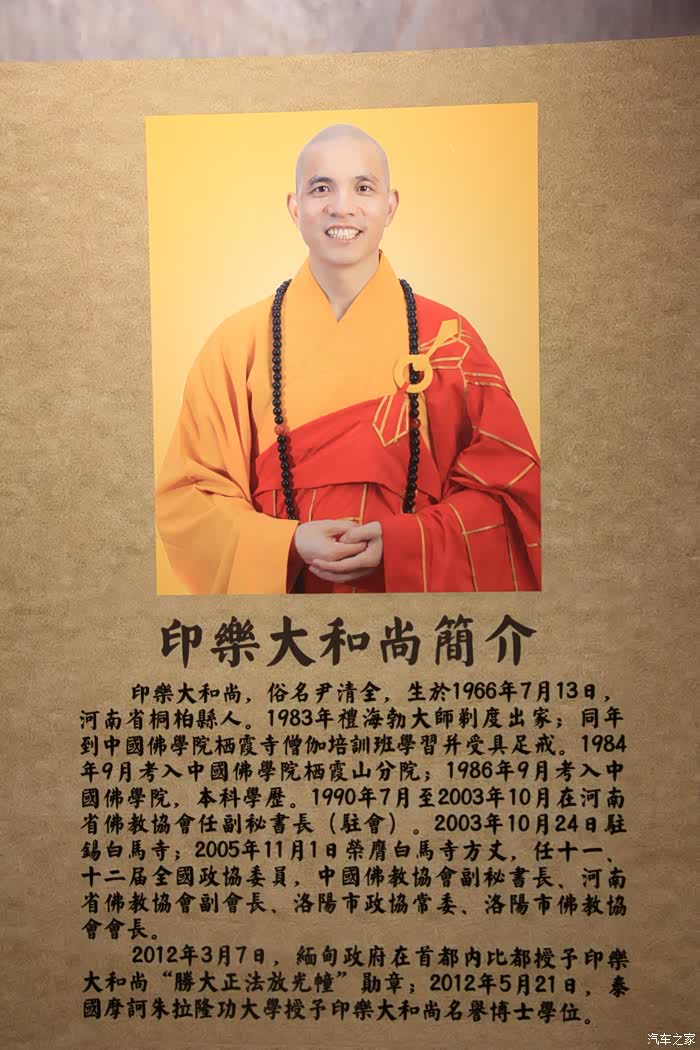 印樂大和尚簡介
印樂大和尚，俗名尹清全，生於1966年7月13日，
河南省桐柏縣人。1983年禮海勃大師剃度出家；同年
到中國佛學院栖霞寺僧伽培訓班學習并受具足戒。1984
年9月考入中國佛學院栖霞山分院；1986年9月考入中
國佛學院，本科學歷。1990年7月至2003年10月在河南
省佛教協會任副秘書長（駐會）。2003年10月24日駐
錫白馬寺；2005年11月1日榮膺白馬寺方丈，任十一、
十二届全國政協委員，中國佛教協會副秘書長、河南
省佛教協會副會長、洛陽市政協常委、洛陽市佛教協
會會長。
2012年3月7日，緬甸政府在首都内比都授予印樂
大和尚“勝大正法放光幢”勛章；2012年5月21日，泰
國摩訶朱拉隆功大學授予印樂大和尚名譽博士學位。
汽车之家